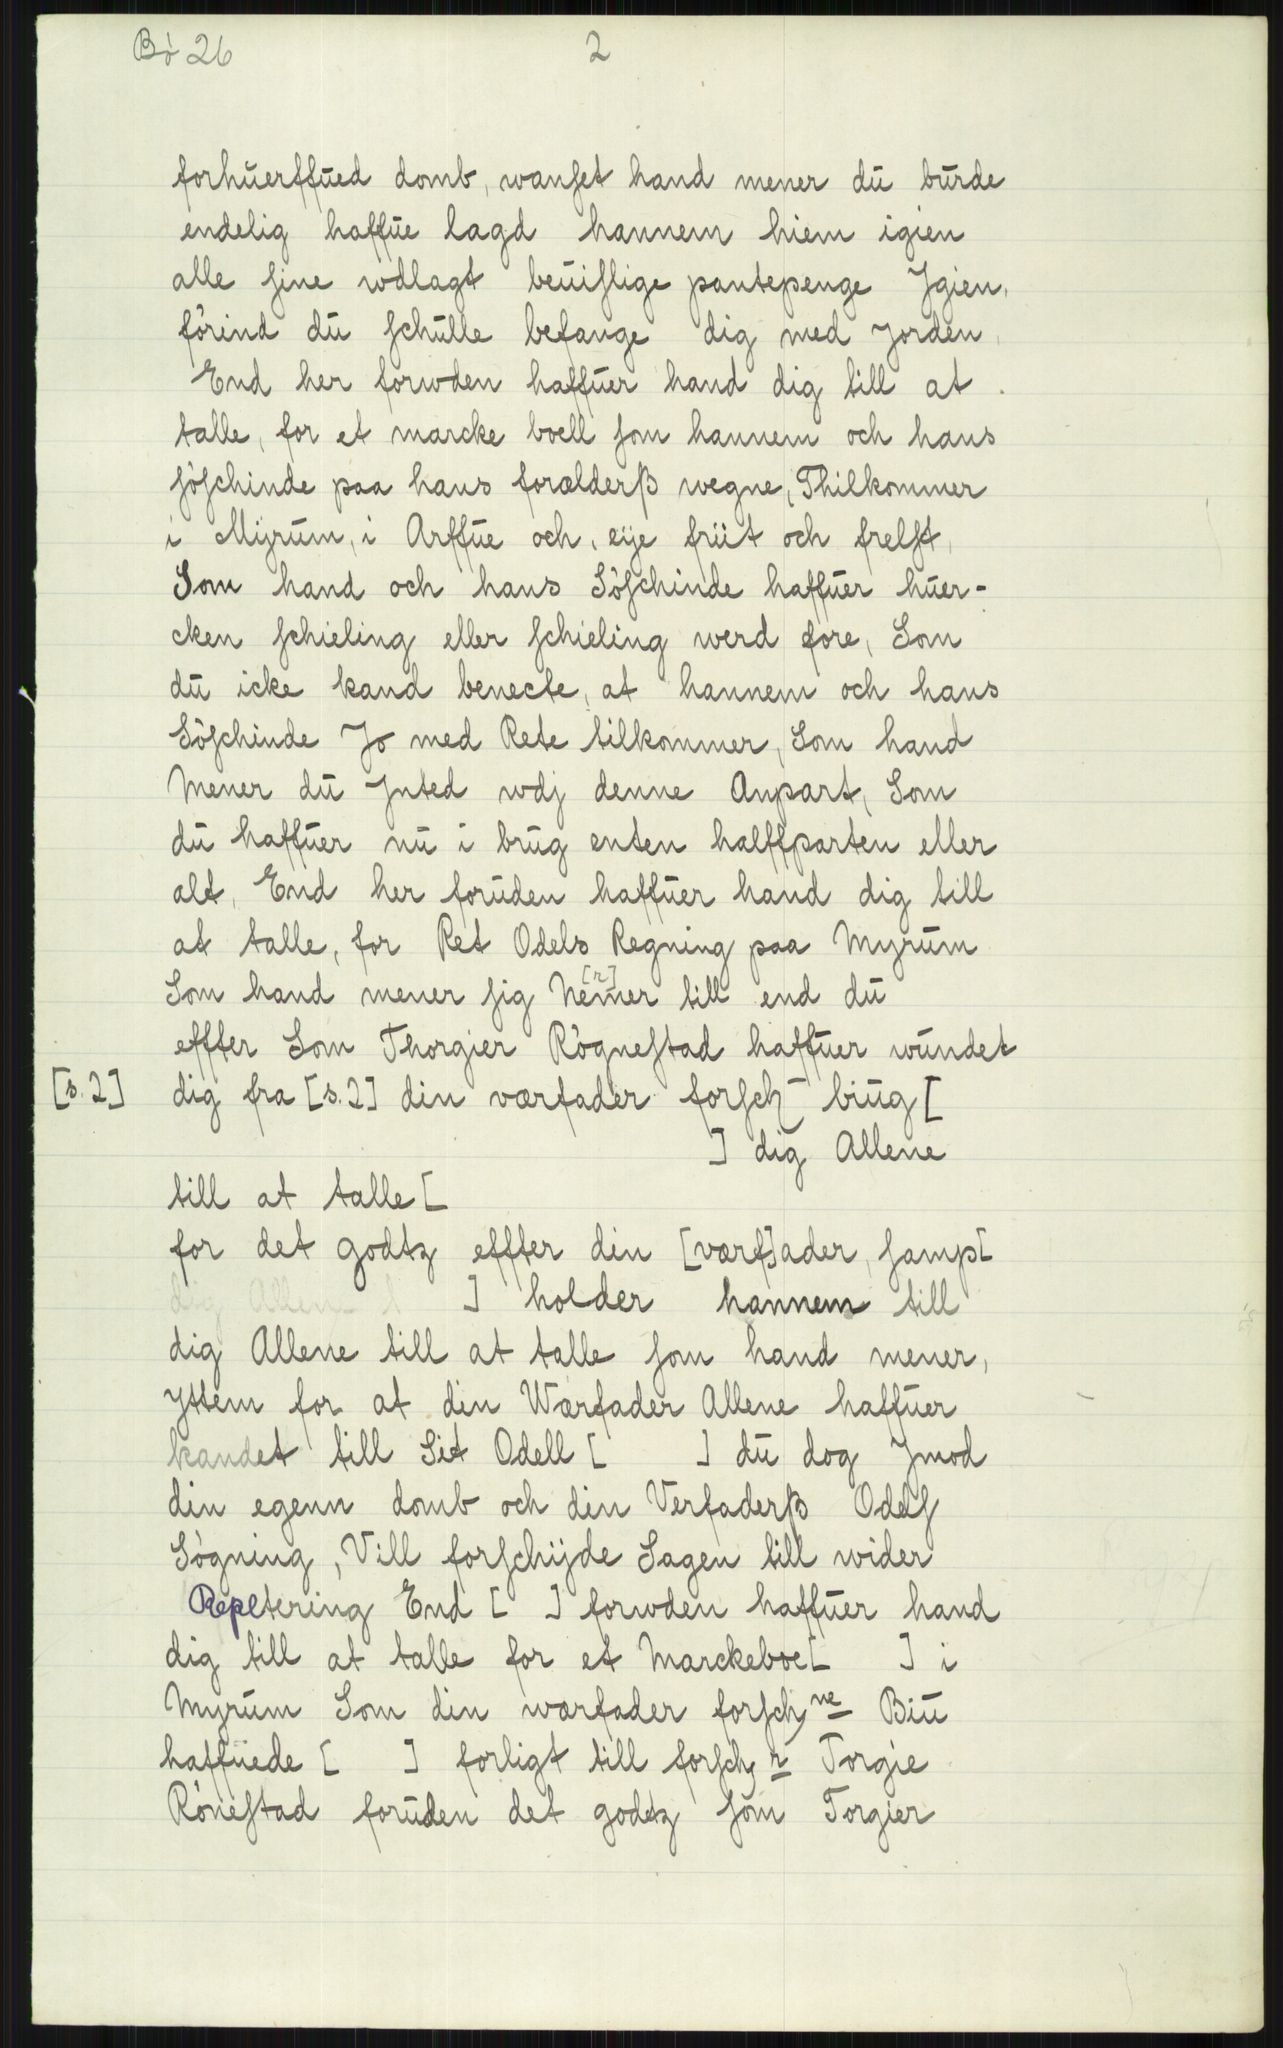 Bö 26 2
forhuerffued domb, wanset hand mener du burde
endelig haffue lagd hannem hiem igien
alle sine wdlagt beuislige pantepenge Jgien,
förind du schulle befange dig med Jorden,
End her forwden haffuer hand dig till at
talle, for et marcke boell som hannem och hans
söschinde paa hans forælderß wegne, Thilkommer
i Mÿrum, i Arffue och, eÿe früt och frelst,
Som hand och hans Söschinde haffuer huer-
cken schieling eller schieling werd fore, Som
du icke kand benecte, at hannem och hans
Söschinde Jo med Rete tilkommer, Som hand
Mener du Jnted wdj denne Anpart, Som
du haffuer nu i brug enten halffparten eller
alt, End her foruden haffuer hand dig till
at talle, for Ret Odels Regning paa Myrum
Som hand mener sig Nem[r]er till end du
effter Som Thorgier Rögnestad haffuer wundet
[s. 2] dig fra [s. 2] din værfader forsch biug [
] dig Allene
till at talle [
for det godtz effter din [værf]ader, samp[
dig Allen t ] holder hannem till
dig Allene till at talle som hand mener,
Ittem for at din Wærfader Allene haffuer
kandet till Sit Odell [ ] du dog Jmod
din egenn domb och din Verfaderß Odels
Sögning, Vill forschÿde Sagen till wider
Repltering End [ ] forwden haffuer hand
dig till at talle for et Marckeboe[ ] i
Myrum Som din wærfader forsch ne Biu
haffuede [ ] forligt till forsch r Torgie
Rönestad foruden det godtz som Torgier